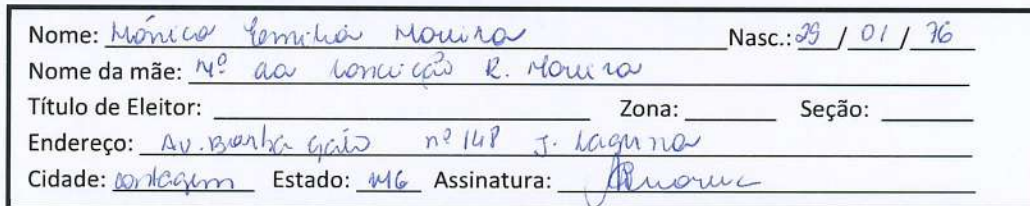 Nome: Mônica Emilia Moreira Nasc.: 29 / 01 / 76
Nome da mãe: Mª da Conceição R. Moreira
Título de Eleitor: Zona: Seção:
Endereço: Av. Barba Gato nº 148 J. Laguna
Cidade: Contagem Estado: MG Assinatura: